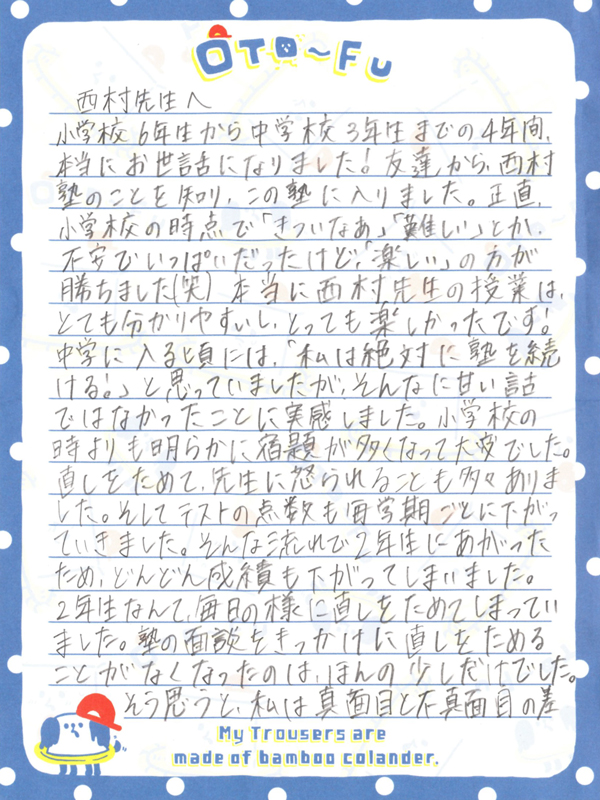 OTO～FU
西村先生へ
小学校6年生から中学校3年生までの4年間、
本当にお世話になりました！友達から、西村
塾のことを知り、この塾に入りました。正直、
小学校の時点で「きついなぁ」「難しい」とか、
不安でいっぱいだったけど、「楽しい」の方が
勝ちました(笑) 本当に西村先生の授業は、
とても分かりやすいし、とっても楽しかったです！
中学に入る頃には、「私は絶対に塾を続
ける！」と思っていましたが、そんなに甘い話
ではなかったことに実感しました。小学校の
時よりも明らかに宿題が多くなって大変でした。
直しをためて、先生に怒られることも多々ありま
した。そしてテストの点数も毎学期ごとに下がっ
ていきました。そんな流れで2年生にあがった
ため、どんどん成績も下がってしまいました。
2年生なんて、毎日の様に直しをためてしまってい
ました。塾の面談をきっかけに直しをためる
ことがなくなったのは、ほんの少しだけでした。
そう思うと、私は真面目と不真面目の差
My Trousers are
made of bamboo colander.